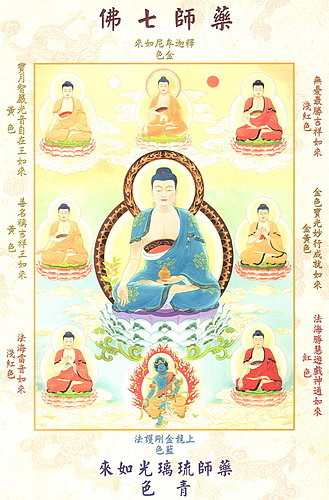 藥師七佛
釋迦牟尼如來
金色
無憂最勝吉祥如來
淺紅色
寶月智嚴光音自在王如來
黃色
金色寶光妙行成就如來
金黃色
善名稱吉祥王如來
黃色
法海勝慧遊戲神通如來
紅色
法海雷音如來
淺紅色
上金剛護法
藍色
藥師琉璃光如來
青色